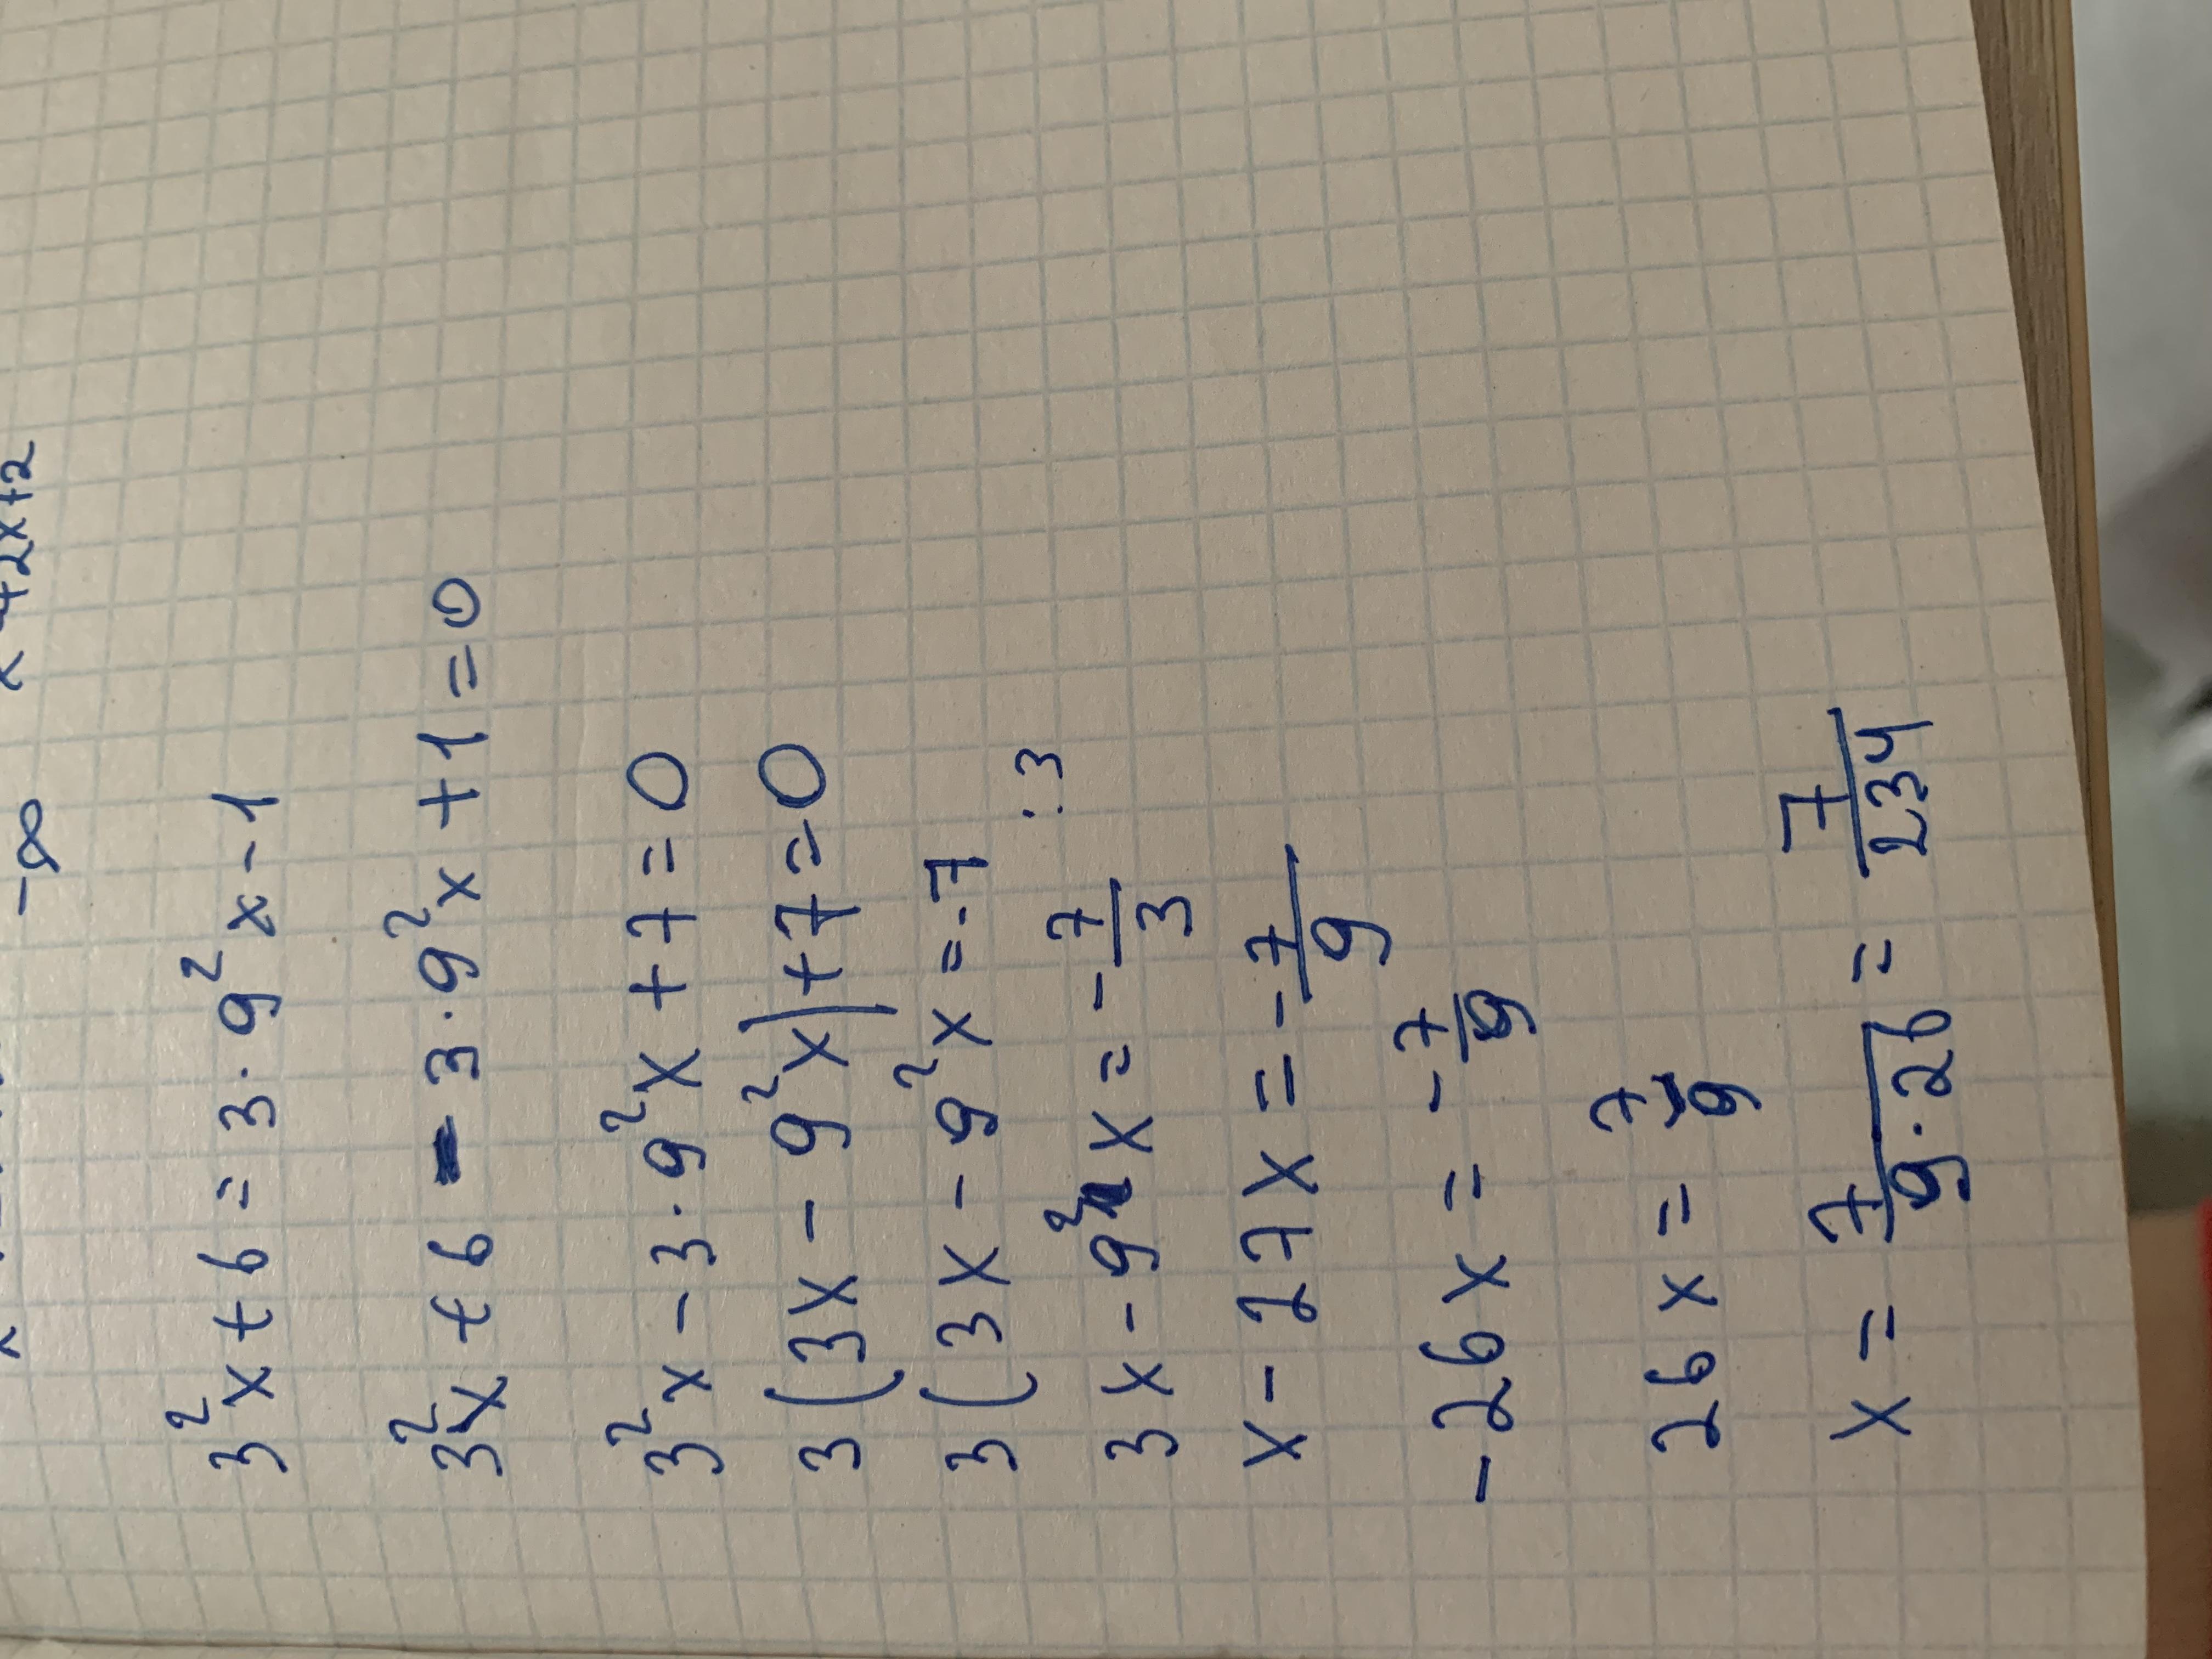 -∞
x⁴+2x+2
3²x+6=3·9²x-1
3²x+6-3·9²x+1=0
3²x-3·9²x+7=0
3(3x-9²x)+7=0
3(3x-9²x=-7 :3
3x-9²x=-7/3
x-27x=-7/9
-26x=-7/9
26x=7/9
x=7/9·26=7/234